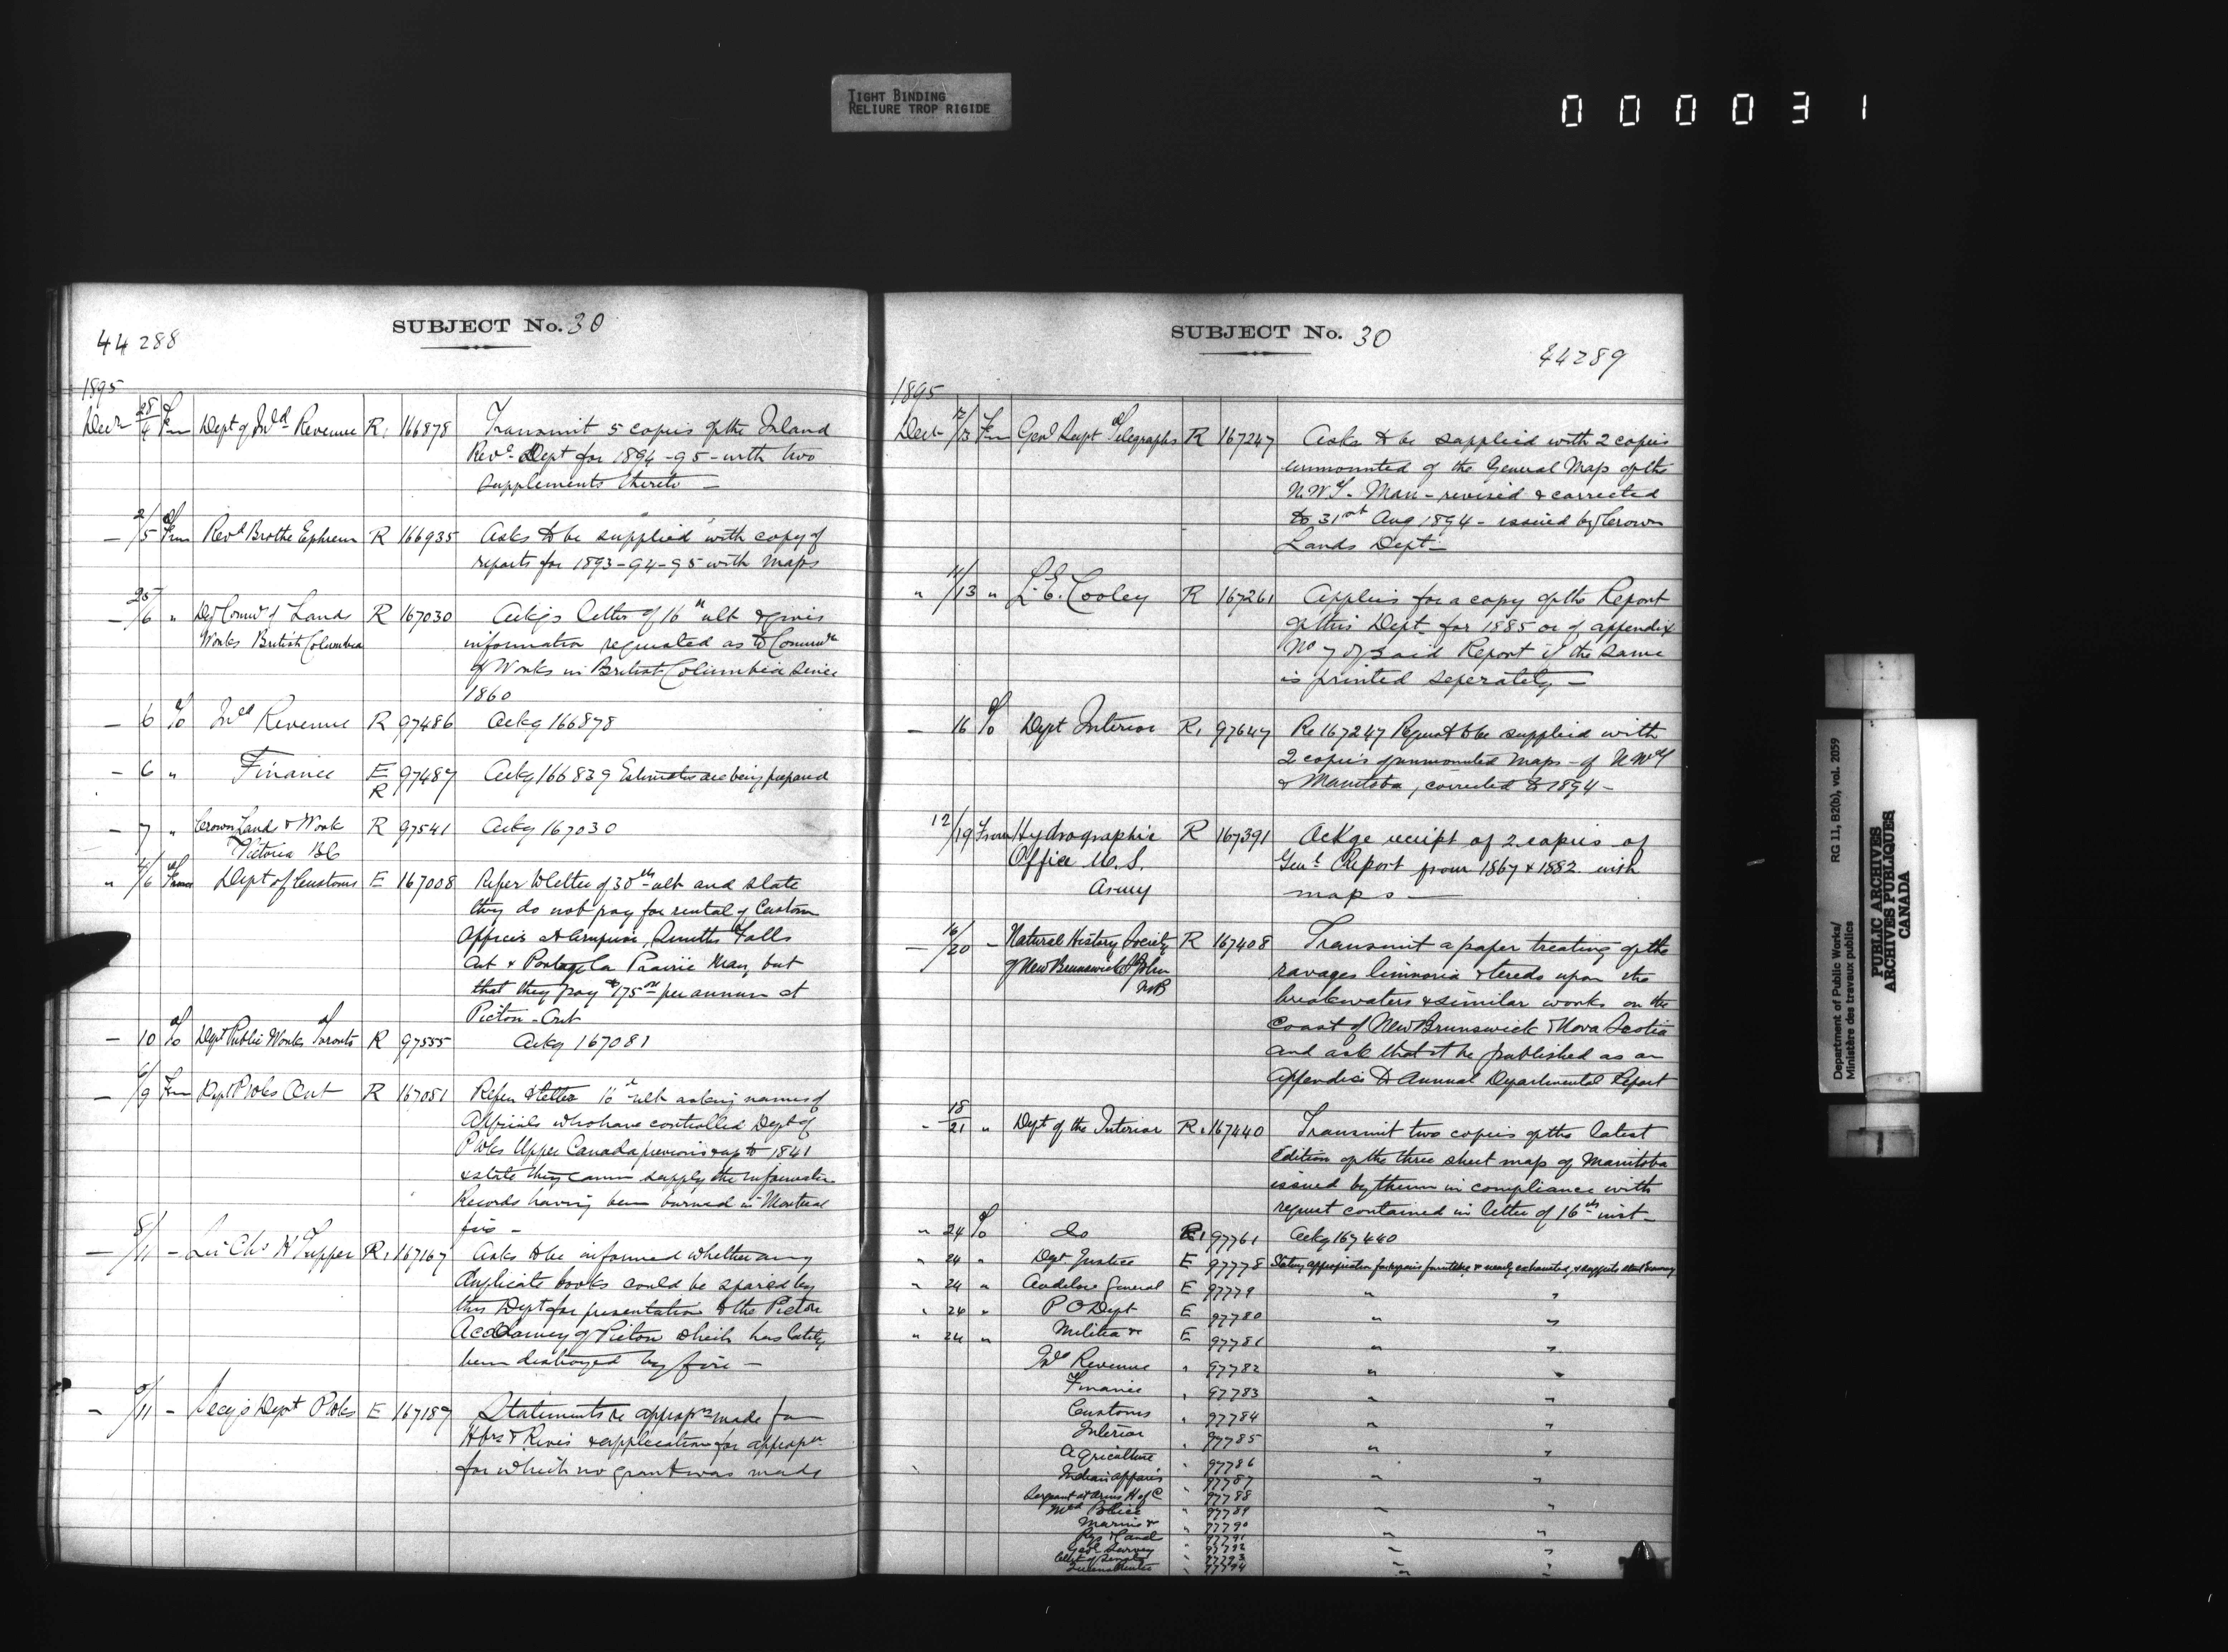 TIGHT BINDING
RELIURE TROP RIGIDE
000031
SUBJECT No. 30
44288
1895
Decr 28/4 Fm Dept of Inld Revenue R. 166878 Transmit 5 copies of the Inland
Reve Dept for 1894-95 - with two
supplements thereto —
— 2/5 From Revd Brothe Ephrem R 166935 Asks to be supplied with copy of
reports for 1893-94-95 with maps
— 25/6 " Dy Commr of Land R 167030 Ackgs letter of 16th ult & gives
Works British Columbia information requested as to Commrs
of Works in British Columbia since
1860
— 6 To Inld Revenue R 97486 Ackg 166878
— 6 " Finance E 97487 Ackg 166839 Estimates are being prepared
R
— 7 " Crown Land & Work R 97541 Ackg 167030
Victoria BC
" 4/6 From Dept of Customs E 167008 Refer to letter of 30th ult and state
they do not pay for rental of Custom
Offices at Smiths Falls
Ont & Portage La Prairie Man, but
that they pay $175.00 per annum at
Picton - Ont
— 10 To Dept Public Works Toronto R 97555 Ackg 167081
— 6/9 Fm Dept P Wks Ont R 167051 Refer to letter 16th ult asking names of
Officials who have controlled Dept of
P Wks Upper Canada previous & up to 1841
& state they cannot supply the information
Records having been burned in Montreal
fire —
— 8/11 - Sir Chs H Tupper R. 167167 Asks to be informed whether any
duplicate books could be spared by
this Dept for presentation to the Pictou
Academy of Pictou which has lately
been destroyed by fire —
— 11 - Secy's Dept P Wks E 167187 Statements re appropns made for
Hbrs & Rivers & application for appropn
for which no grant was made
SUBJECT No. 30
44289
1895
Decr 12/13 Fm Genl Supt Telegraphs R 167247 Asks to be supplied with 2 copies
unmounted of the General Map of the
N.W.T. Man - revised & corrected
to 31st Aug 1894 - issued by Crown
Lands Dept —
" 11/13 " L. E. Cooley R 167261 Applies for a copy of the Report
of this Dept for 1885 or of appendix
No 7 of said Report if the same
is printed seperately —
— 16 To Dept Interior R. 97647 Re 167247 Request to be supplied with
2 copies of unmounted maps - of N.W.T
& Manitoba, corrected to 1894 -
12/19 From Hydrographic R 167391 Ackge receipt of 2 copies of
Office U.S. Genl Report from 1867 & 1882 with
Army maps —
— 16/20 - Natural History Society R 167408 Transmit a paper treating of the
of New Brunswick St John ravages limnoria & teredo upon the
NB breakwaters & similar works on the
coast of New Brunswick & Nova Scotia
and ask that it be published as an
Appendix to Annual Departmental Report
- 18/21 " Dept of the Interior R. 167440 Transmit two copies of the latest
Edition of the three sheet map of Manitoba
issued by them in compliance with
request contained in letter of 16th inst -
" 24 To do R. 97761 Ackg 167440
" 24 " Dept Justice E 97778 Stating appropriation for repairs furniture & nearly exhausted, & suggests economy
" 24 " Auditor General E 97779 " "
" 24 " P O Dept E 97780 " "
" 24 " Militia & E 97781 " "
Inld Revenue " 97782 " "
Finance " 97783 " "
Customs " 97784 " "
Interior " 97785 " "
Agriculture " 97786
Indian affairs " 97787 " "
Sergeant at Arms H of C " 97788
Mtd Police " 97789 " "
Marine & " 97790
Rys & Canal " 97791 " "
Geol Survey " 97792 " "
Clk of Senate " 97793
" 97794 " "
Department of Public Works/
Ministère des travaux publics
RG 11, B2(b), vol. 2059
PUBLIC ARCHIVES
ARCHIVES PUBLIQUES
CANADA